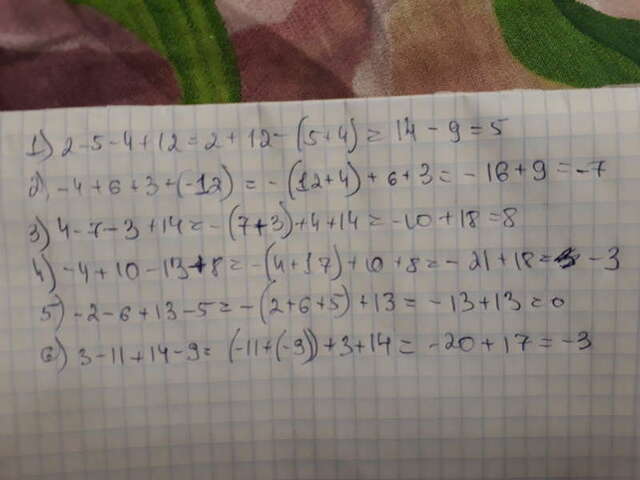 1) 2-5-4+12=2+12-(5+4)=14-9=5
2) -4+6+3+(-12)=-(12+4)+6+3=-16+9=-7
3) 4-7-3+14=-(7+3)+4+14=-10+18=8
4) -4+10-13+8=-(4+17)+10+8=-21+18=-3
5) -2-6+13-5=-(2+6+5)+13=-13+13=0
6) 3-11+14-9=(-11+(-9))+3+14=-20+17=-3